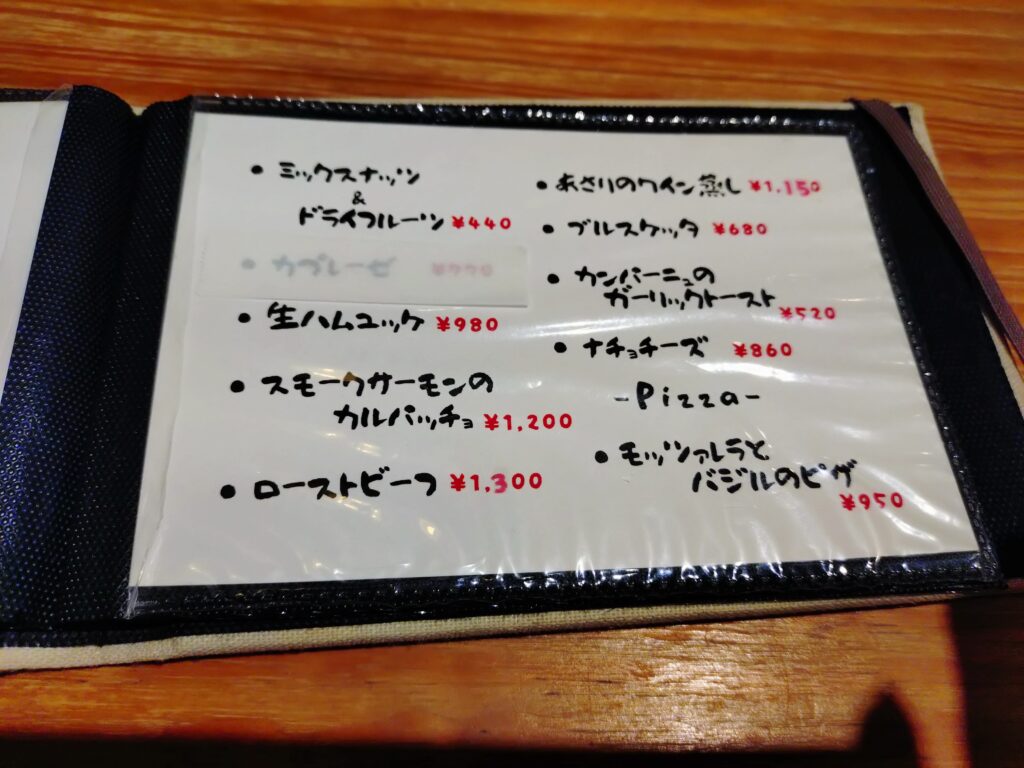 • ミックスナッツ
&
ドライフルーツ ¥440
• カプレーゼ
• 生ハムユッケ ¥980
• スモークサーモンの
カルパッチョ ¥1,200
• ローストビーフ ¥1,300
• あさりのワイン蒸し ¥1,150
• ブルスケッタ ¥680
• カンパーニュの
ガーリックトースト
¥520
• ナチョチーズ ¥860
-Pizza-
• モッツァレラと
バジルのピザ
¥950